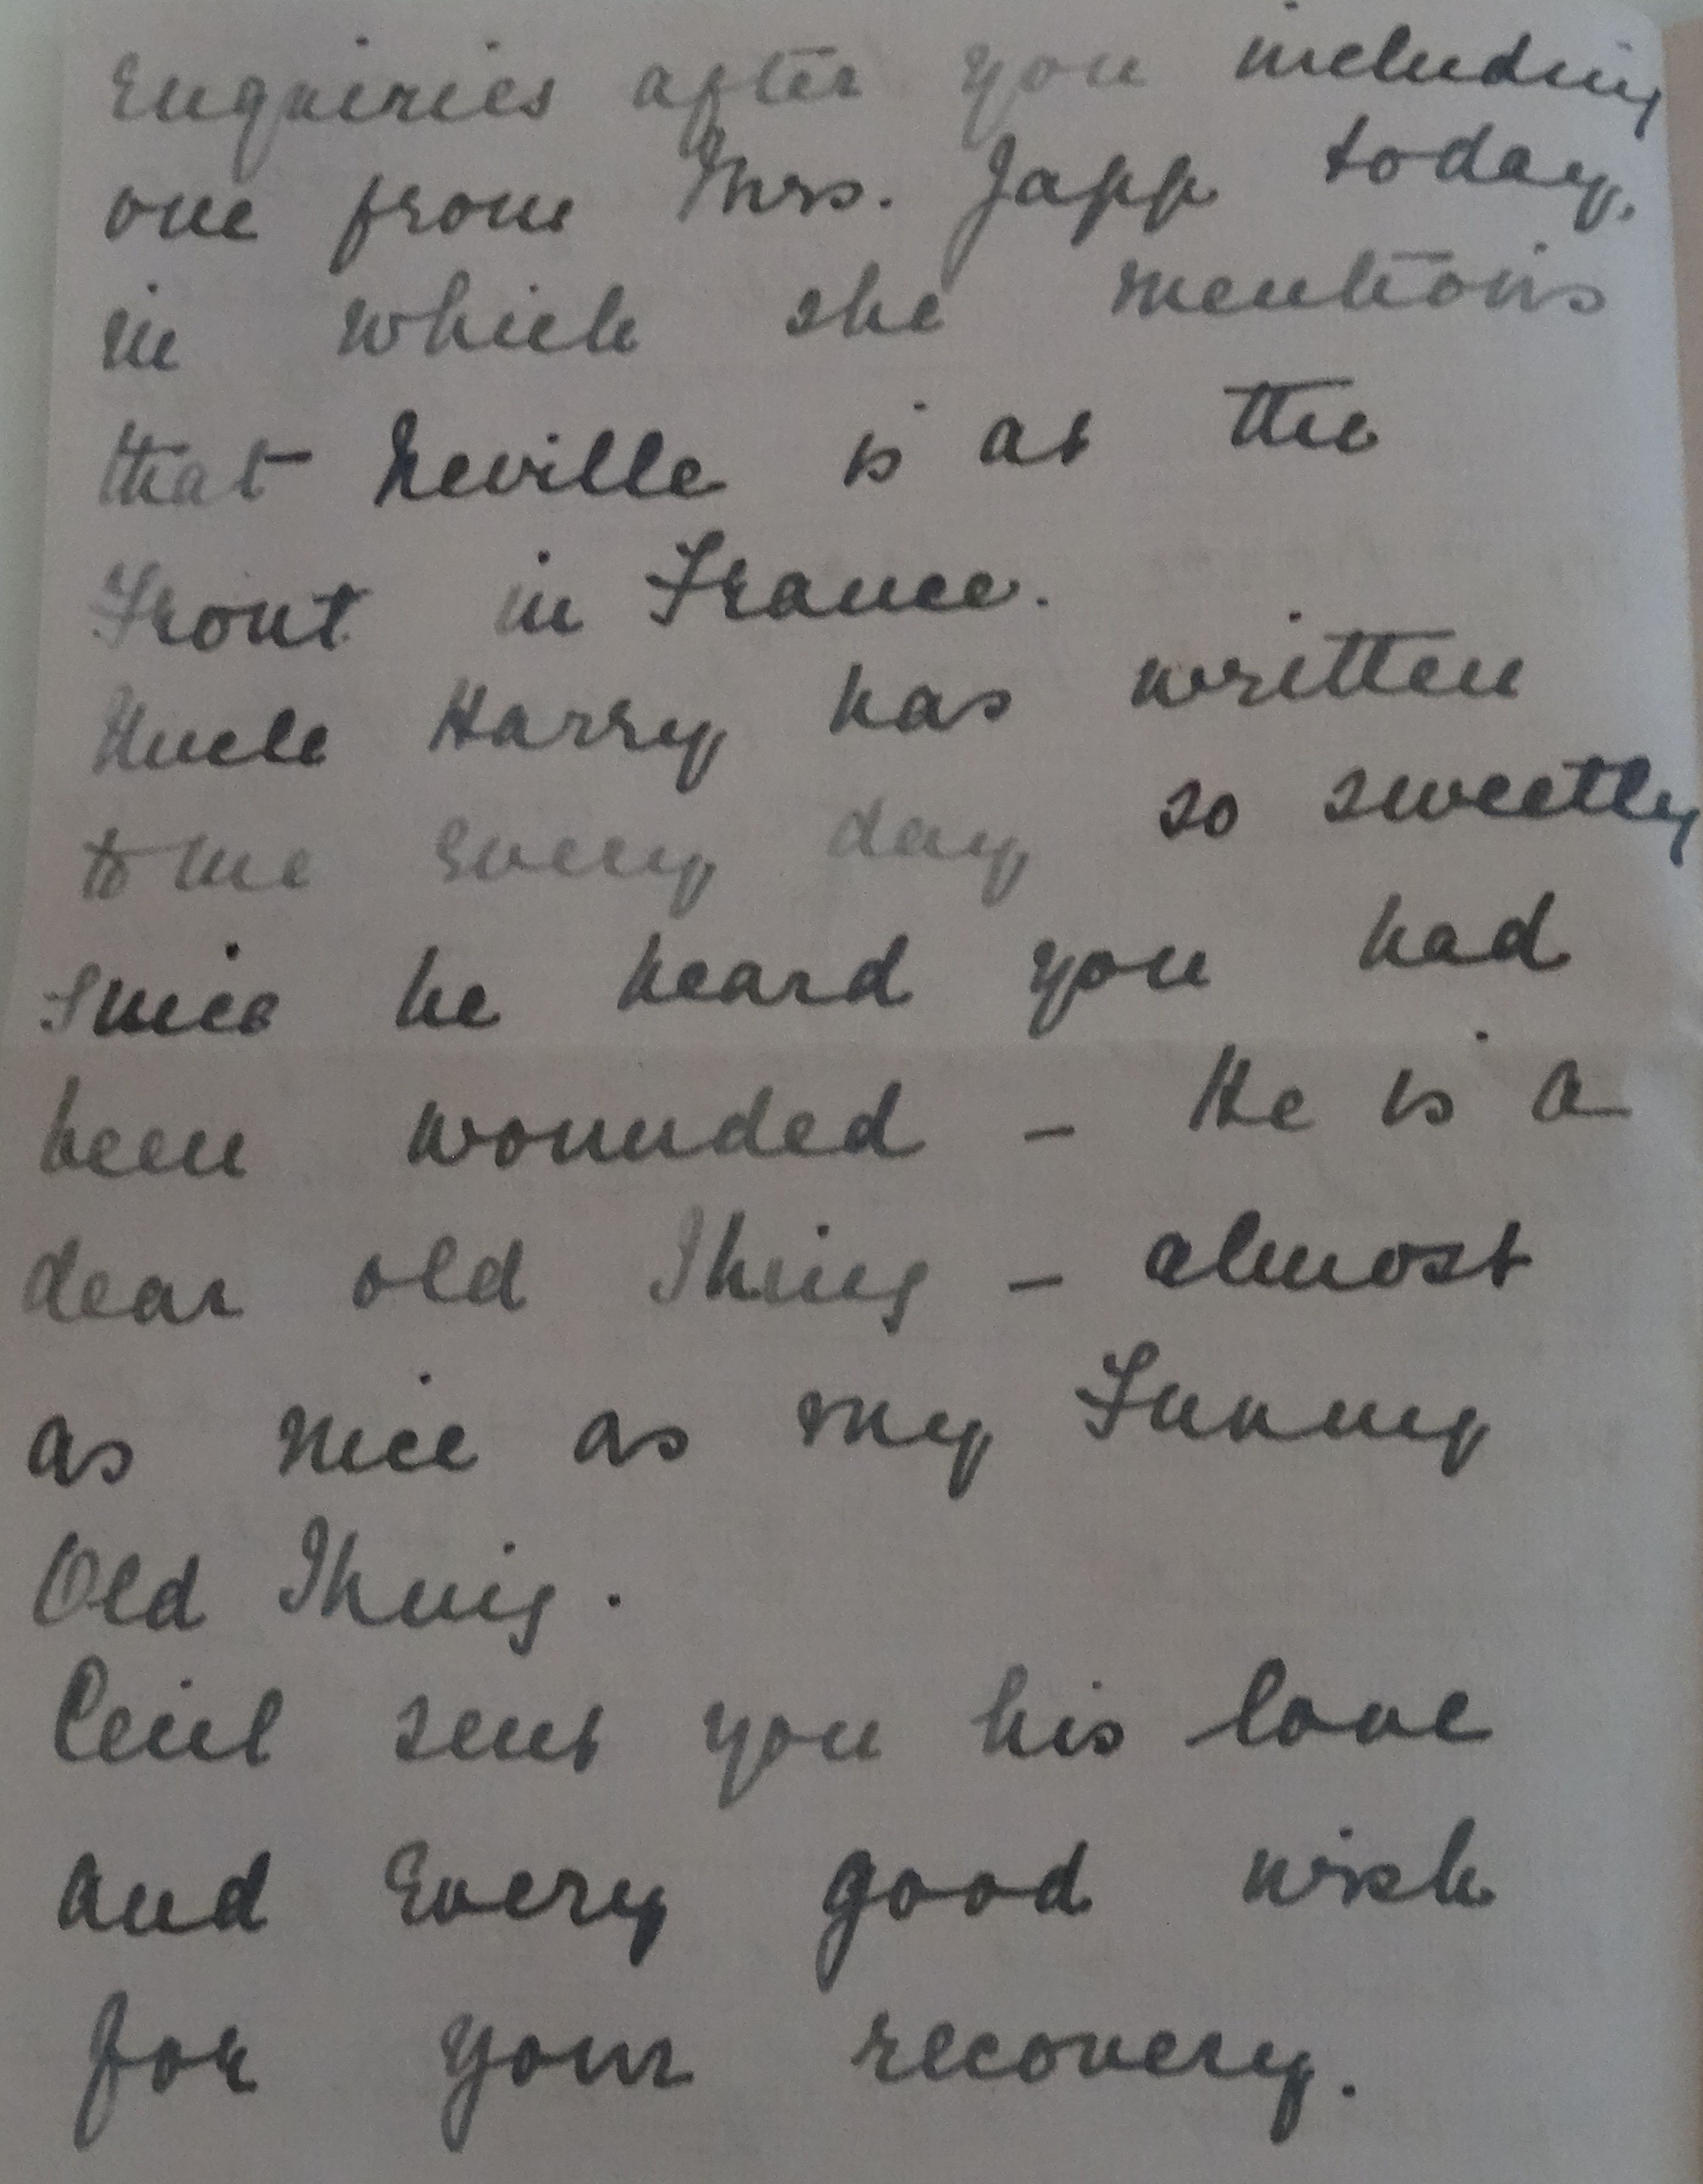 Enquiries after you including
one from Mrs. Japp today,
in which she mentions
that Neville is at the
Front in France.
Uncle Harry has written
to me every day so sweetly
since he heard you had
been wounded – He is a
dear old Thing – almost
as nice as my Funny
Old Thing.
Cecil sent you his love
and Every good wish
for your recovery.